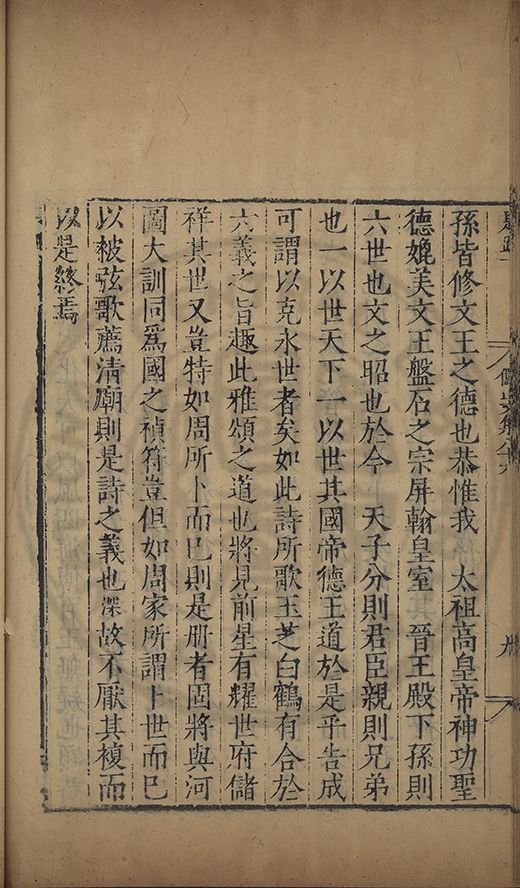 孫皆修文王之德也恭惟我　太祖高皇帝神功聖
德媲美文王盤石之宗屏翰皇室　晉王殿下孫則
六世也文之昭也於今　天子分則君臣親則兄弟
也一以世天下一以世其國帝德王道於是乎告成
可謂以克永世者矣如此詩所歌玉芝白鶴有合於
六義之旨趣此雅頌之道也將見前星有耀世府儲
祥其世又豈特如周所卜而已則是册者固將與河
圖大訓同爲國之禎符豈但如周家所謂卜世而已
以被弦歌薦清廟則是詩之義也深故不厭其複而
以是終焉